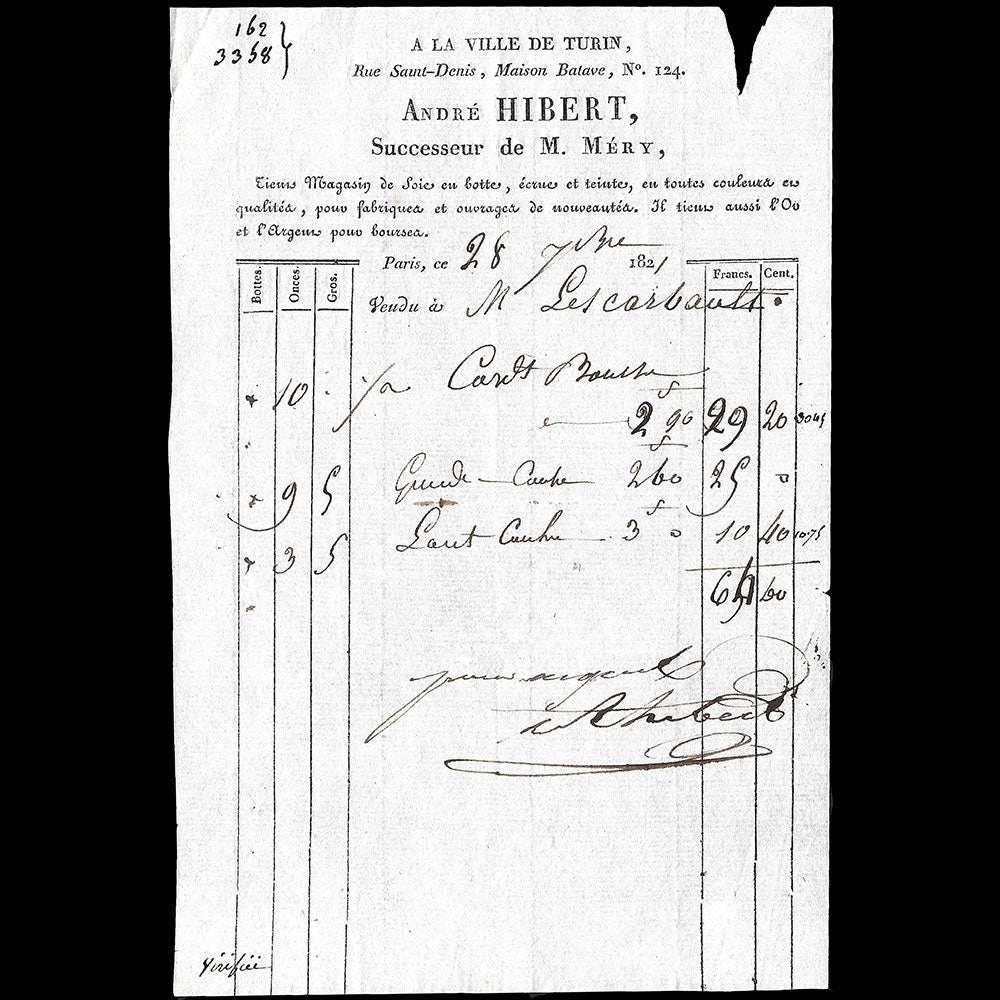 162
3358
A LA VILLE DE TURIN,
Rue Saint-Denis, Maison Batave, N°. 124.
ANDRÉ HIBERT,
Successeur de M. MÉRY,
Tient Magasin de Soie en botte, écrue et teinte, en toutes couleurs et
qualités, pour fabriques et ouvrages de nouveautés. Il tient aussi l'Or
et l'Argent pour bourses.
Paris, ce 28 7bre 1821
Bottes. Onces. Gros. Francs. Cent.
Vendu à M Lescarbault.
10
2 90 29 20 30 45
9 5 260 25 0
3 5 3 0 10 40 10.75
64 60
pour acquit
A hibert
Vérifiée